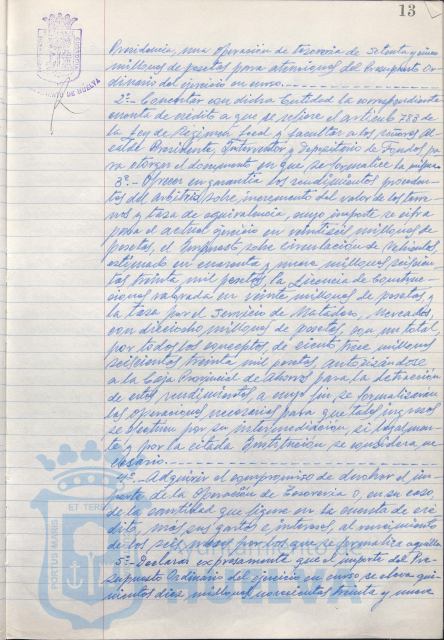 13
AYUNTAMIENTO DE HUELVA
Providencia, una operación de tesorería de setenta y cinco
millones de pesetas para atenciones del Presupuesto Or-
dinario del ejercicio en curso.
2º.- Concertar con dicha Entidad la correspondiente
cuenta de crédito a que se refiere el artículo 783 de
la Ley de Régimen Local y facultar a los señores Al-
calde Presidente, Interventor y Depositario de Fondos pa-
ra otorgar el documento en que se formalice la misma.
3º.- Ofrecer en garantía los rendimientos proceden-
tes del arbitrio sobre incremento del valor de los terre-
nos y tasa de equivalencia, cuyo importe se cifra
para el actual ejercicio en veintiseis millones de
pesetas, el Impuesto sobre circulación de vehículos,
estimado en cuarenta y nueve millones seiscien-
tas treinta mil pesetas, la Licencia de Construc-
ciones valorada en veinte millones de pesetas y
la tasa por el servicio de Matadero, Mercados,
con dieciocho millones de pesetas, con un total,
por todos los conceptos de ciento trece millones
seiscientas treinta mil pesetas, autorizándose
a la Caja Provincial de Ahorros para la detracción
de estos rendimientos, a cuyo fin se formalizarán
las operaciones necesarias para que tales ingresos
se efectúen por su intermediación, si legalmen-
te y por la citada Institución se considera ne-
cesario.
4º.- Adquirir el compromiso de devolver el im-
porte de la Operación de Tesorería o, en su caso,
de la cantidad que figure en la cuenta de cré-
dito, más sus gastos e intereses, al vencimiento
de los seis meses por los que se formaliza aquella.
5º.- Declarar expresamente que el importe del Pre-
supuesto Ordinario del ejercicio en curso, se eleva a qui-
nientos diez millones novecientas treinta y nueve
PORTUS MARIS
ET TERRÆ
Ayuntamiento de
HUELVA